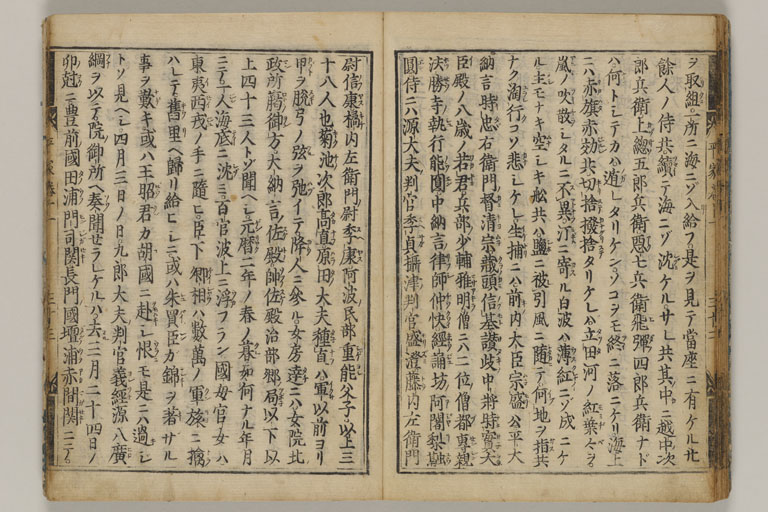 ヲ取組一所ニ海ニソ入給フ是ヲ見テ當座ニ有ケル廿
餘人ノ侍共續テ海ニソ沈ケルサレ共其中ニ越中次
郎兵衛上總五郎兵衛悪七兵衛飛彈四郎兵衛ナト
ハ何トシテカハ遁レタリケンソコヲモ終ニ落ニケリ海上
ニハ赤旗赤符共切捨撥捨タリケレハ立田河ノ紅葉々ヲ
嵐ノ吹散シタルニ不異汀ニ寄ル白波ハ薄紅ニソ成ニケ
ル主モナキ空シキ舩共ハ鹽ニ被引風ニ随テ何地ヲ指共
ナク淘行コソ悲シケレ生捕ニハ前内大臣宗盛公平大
納言時忠右衛門督清宗藏頭信基讃岐中將時實大
臣殿ノ八歳ノ若君兵部少輔雅明僧ニハ二位僧都專親
法勝寺執行能圓中納言律師仲快經誦坊阿闍梨融
圓侍ニハ源大夫判官季貞攝津判官盛澄藤内左衛門
尉信康橘内左衛門尉季康阿波民部重能父子以上三
十八人也菊池次郎髙直原田大夫種直ハ軍以前ヨリ
甲ヲ脱弓ノ弦ヲ弛イテ降人ニ參ル女房達ニハ女院北
政所﨟御方大納言ノ佐殿帥佐殿治部卿局以下以
上四十三人トソ聞ヘシ元暦二年ノ春ノ暮如何ナル年月
ニテ一人海底ニ沈ミ百官波上ニ浮フラン國母官女ハ
東夷西戎ノ手ニ随ヒ臣下卿相ハ數萬ノ軍旅ニ擒
ハレテ舊里ヘ歸リ給ヒシニ或ハ朱買臣カ錦ヲ着サル
事ヲ歎キ或ハ王昭君カ胡國ニ赴シ恨モ是ニハ過シ
トソ見ヘシ四月三日ノ日九郎大夫判官義經源八廣
綱ヲ以テ院御所ヘ奏聞セラレケルハ去三月二十四日ノ
卯尅ニ豊前國田浦門司関長門國壇浦赤間関ニテ